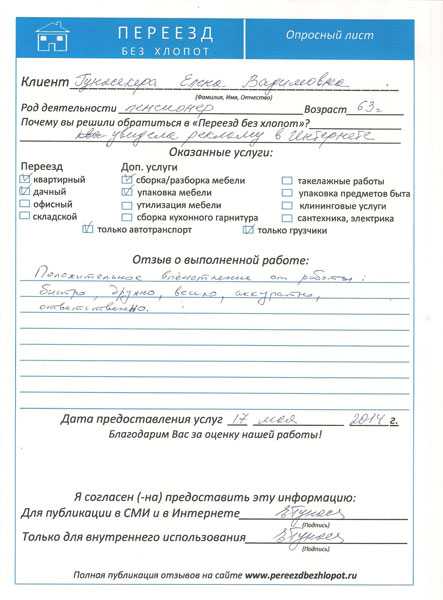 ПЕРЕЕЗД
БЕЗ ХЛОПОТ
Опросный лист
Клиент Елена Вадимовна
(Фамилия, Имя, Отчество)
Род деятельности пенсионер Возраст 63 г
Почему вы решили обратиться в «Переезд без хлопот»?
увидела рекламу в Интернете
Оказанные услуги:
Переезд Доп. услуги
квартирный сборка/разборка мебели такелажные работы
дачный упаковка мебели упаковка предметов быта
офисный утилизация мебели клининговые услуги
складской сборка кухонного гарнитура сантехника, электрика
только автотранспорт только грузчики
Отзыв о выполненной работе:
Положительное впечатление от работы:
быстро, дружно, весело, аккуратно,
ответственно.
Дата предоставления услуг 17 мая 2014 г.
Благодарим Вас за оценку нашей работы!
Я согласен (-на) предоставить эту информацию:
Для публикации в СМИ и в Интернете
(Подпись)
Только для внутреннего использования
(Подпись)
Полная публикация отзывов на сайте www.pereezdbezhlopot.ru